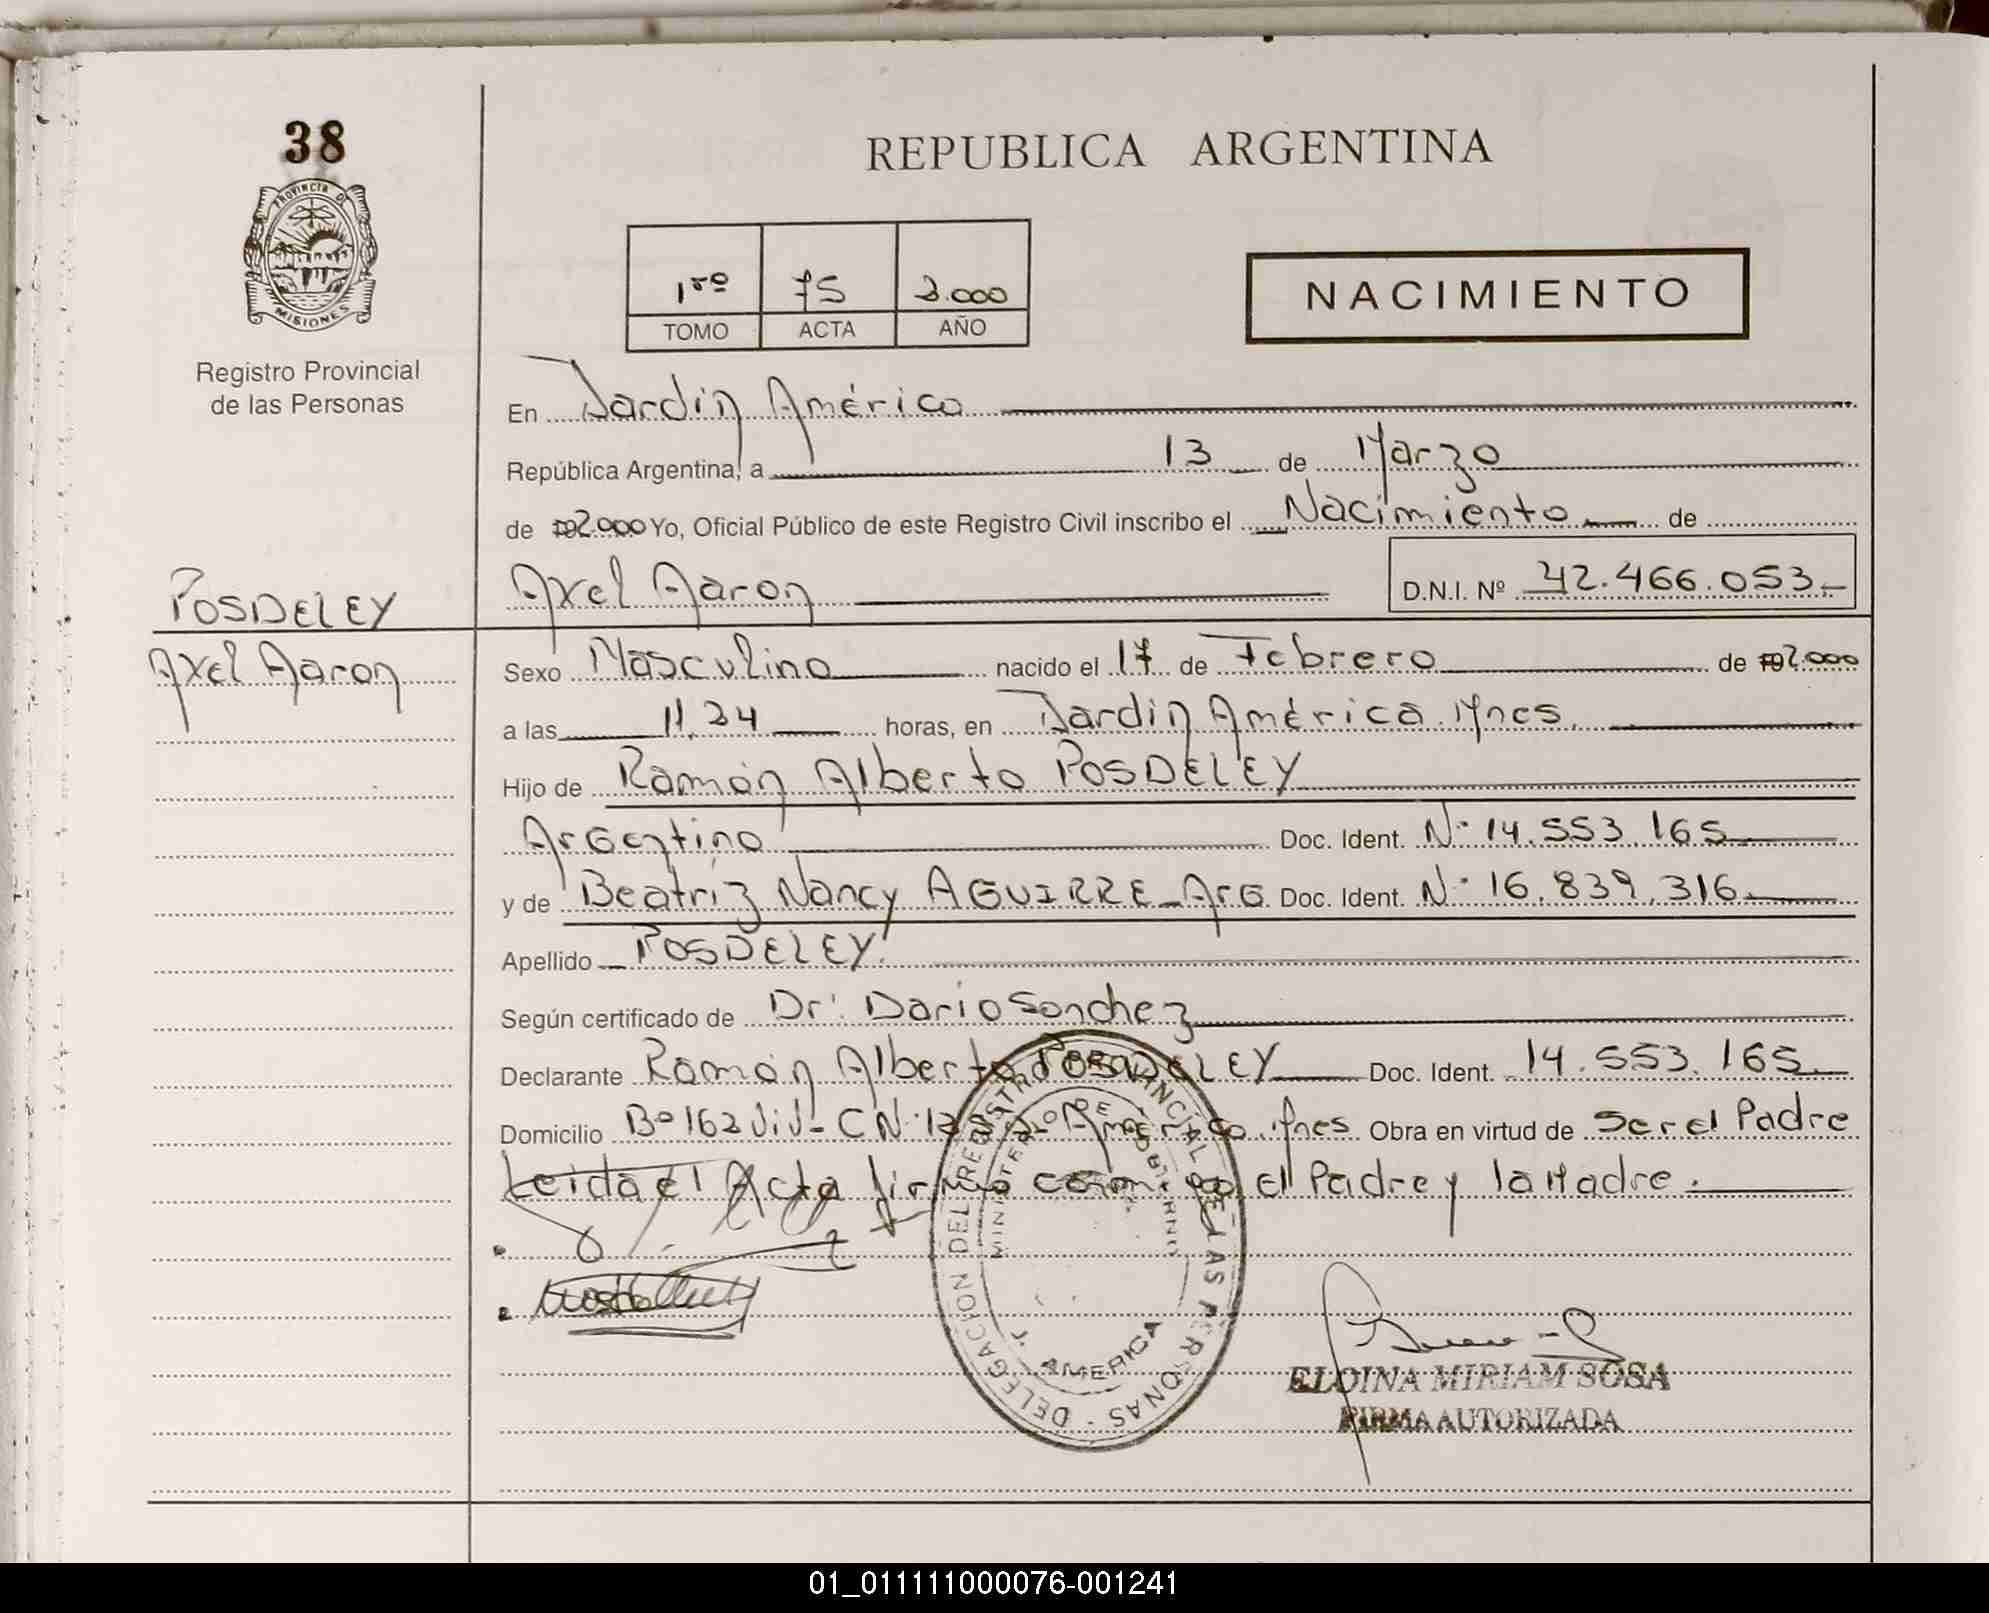 38
PROVINCIA DE
MISIONES
Registro Provincial
de las Personas
REPUBLICA ARGENTINA
1ro 75 2.000
TOMO ACTA AÑO
NACIMIENTO
En Jardin América
República Argentina, a 13 de Marzo
de 2.000 Yo, Oficial Público de este Registro Civil inscribo el Nacimiento de
Axel Aaron D.N.I. Nº 42.466.053.-
POSDELEY
Axel Aaron
Sexo Masculino nacido el 17 de Febrero de 2.000
a las 11,24 horas, en Jardin América. Mnes.
Hijo de Ramón Alberto POSDELEY
Argentino Doc. Ident. N° 14.553.165
y de Beatriz Nancy AGUIRRE - Arg Doc. Ident. N° 16.839.316.
Apellido POSDELEY.
Según certificado de Dr. Dario Sanchez
Declarante Ramón Alberto POSDELEY Doc. Ident. 14.553.165.
Domicilio Bº 162 Viv - C N° Mnes Obra en virtud de Ser el Padre
Leida el Acta firma conmigo el Padre y la Madre.
DELEGACION DEL REGISTRO PROVINCIAL DE LAS PERSONAS
MINISTERIO DE GOBIERNO
J. AMERICA
ELOINA MIRIAM SOSA
FIRMA AUTORIZADA
01_011111000076-001241